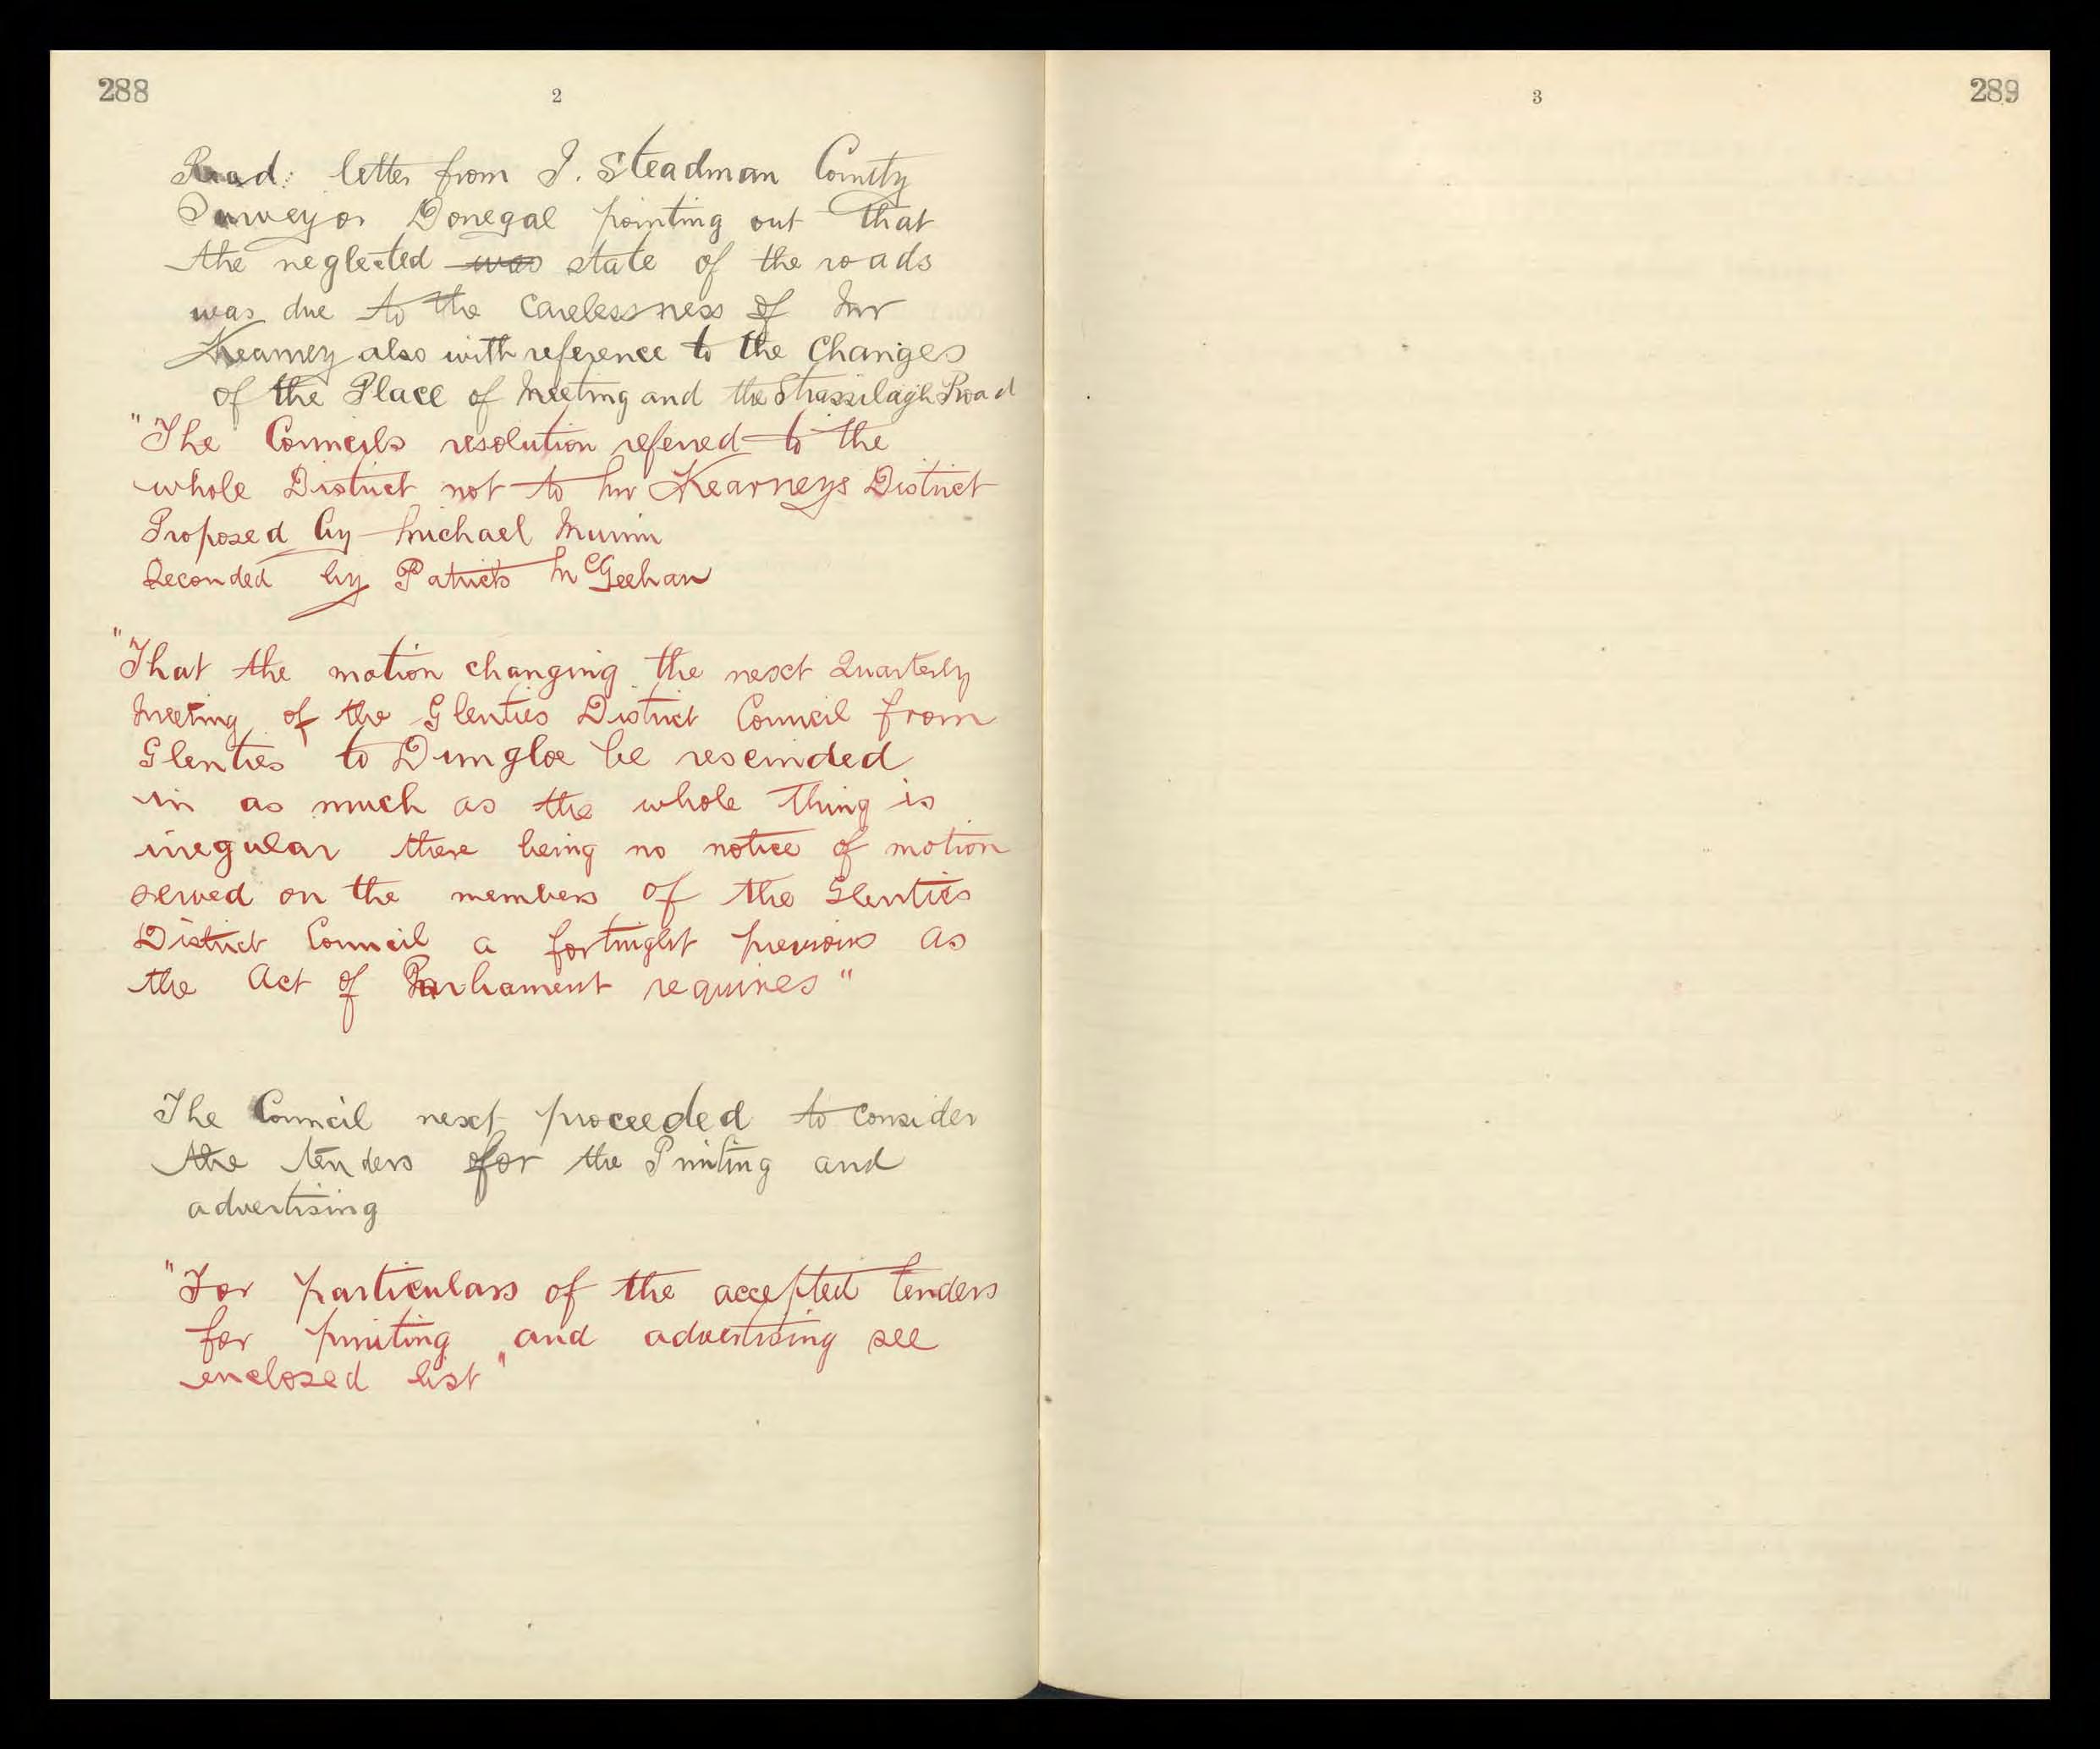 288
2
Read: letter from J. Steadman County
Surveyor Donegal pointing out that
the neglected was state of the roads
was due to the carelessness of Mr
Kearney also with reference to the Changes
of the Place of Meeting and the Strassilagh Road
"The Councils resolution referred to the
whole District not to Mr Kearneys District
Proposed by Michael
Seconded by Patrick McGeehan
"That the motion changing the next Quarterly
Meeting of the Glenties District Council from
Glenties to Dungloe be rescinded
in as much as the whole thing is
irregular there being no notice of motion
served on the members of the Glenties
District Council a fortnight previous as
the Act of Parliament requires"
The Council next proceeded to consider
the tenders for the Printing and
advertising
"For particulars of the accepted tenders
for printing and advertising see
enclosed list"
3
289